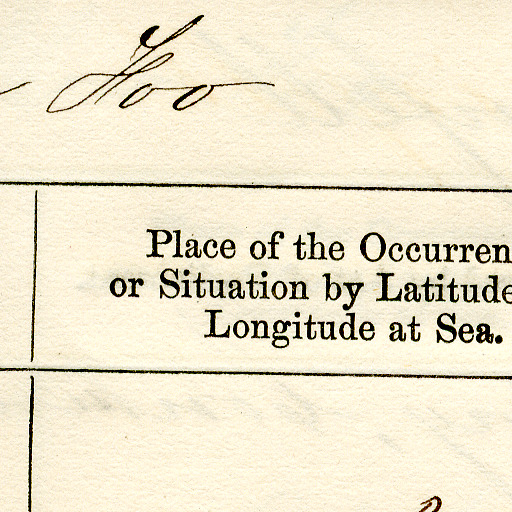 Hoo
Place of the Occurren
or Situation by Latitude
Longitude at Sea.